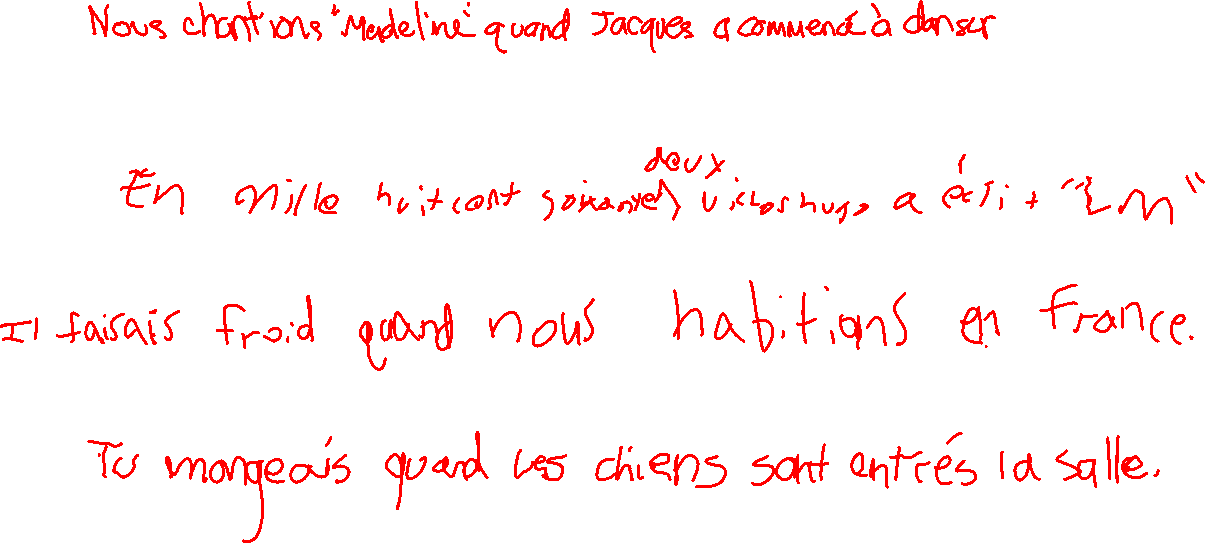 Nous chantions "Madeline" quand Jacques a commencé à danser
En mille huit cent soixante deux victor hugo a écrit "LM"
Il faisais froid quand nous habitions en france.
Tu mangeais quand les chiens sont entrés la salle.